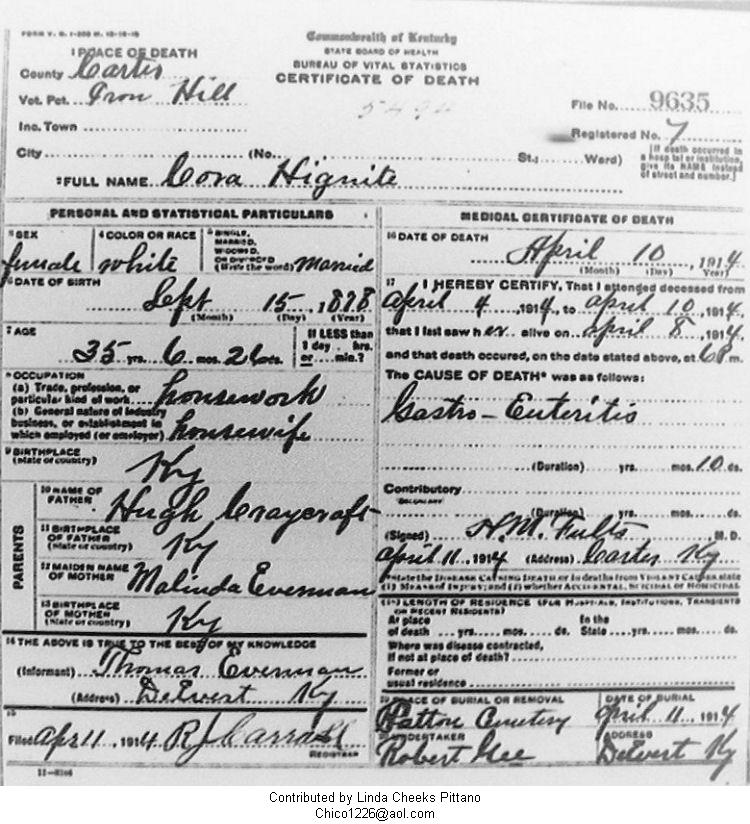 FORM V. S. 1-
Commonwealth of Kentucky
STATE BOARD OF HEALTH
BUREAU OF VITAL STATISTICS
CERTIFICATE OF DEATH
1 PLACE OF DEATH
County Carter
Vot. Pct. Iron Hill
Inc. Town
City (No. St.; Ward)
File No. 9635
Registered No. 7
[If death occurred in a hospital or institution, give its NAME instead of street and number.]
2 FULL NAME Cora Hignite
PERSONAL AND STATISTICAL PARTICULARS
3 SEX female
4 COLOR OR RACE white
5 SINGLE, MARRIED, WIDOWED, OR DIVORCED (Write the word) Married
6 DATE OF BIRTH
Sept 15, 1878
(Month) (Day) (Year)
7 AGE
35 yrs. 6 mos. 26 ds.
If LESS than 1 day hrs. or min.?
8 OCCUPATION
(a) Trade, profession, or particular kind of work housework
(b) General nature of industry business, or establishment in which employed (or employer) housewife
9 BIRTHPLACE (State or country) Ky
PARENTS
10 NAME OF FATHER Hugh Craycraft
11 BIRTHPLACE OF FATHER (State or country) Ky
12 MAIDEN NAME OF MOTHER Malinda Everman
13 BIRTHPLACE OF MOTHER (State or country) Ky
14 THE ABOVE IS TRUE TO THE BEST OF MY KNOWLEDGE
(Informant) Thomas Everman
(Address) Ky
15
Filed Apr 11, 1914 R J Carroll
REGISTRAR
MEDICAL CERTIFICATE OF DEATH
16 DATE OF DEATH
April 10, 1914
(Month) (Day) (Year)
17 I HEREBY CERTIFY, That I attended deceased from
April 4, 1914, to April 10, 1914,
that I last saw her alive on April 8, 1914
and that death occured, on the date stated above, at m.
The CAUSE OF DEATH* was as follows:
Gastro-Enteritis
(Duration) yrs. mos. 10 ds.
Contributory
(Duration) yrs. mos. ds.
(Signed) H.M. Fults M. D.
April 11, 1914 (Address) Carter Ky
*State the DISEASE CAUSING DEATH or in deaths from VIOLENT CAUSES state (1) MEANS OF INJURY; and (2) whether ACCIDENTAL, SUICIDAL OR HOMICIDAL
18 LENGTH OF RESIDENCE (FOR HOSPITALS, INSTITUTIONS, TRANSIENTS OR RECENT RESIDENTS)
At place of death yrs. mos. ds. In the State yrs. mos. ds.
Where was disease contracted, if not at place of death?
Former or usual residence
19 PLACE OF BURIAL OR REMOVAL Patton Cemetery
DATE OF BURIAL April 11, 1914
20 UNDERTAKER Robert Gee
ADDRESS Ky
Contributed by Linda Cheeks Pittano
Chico1226@aol.com